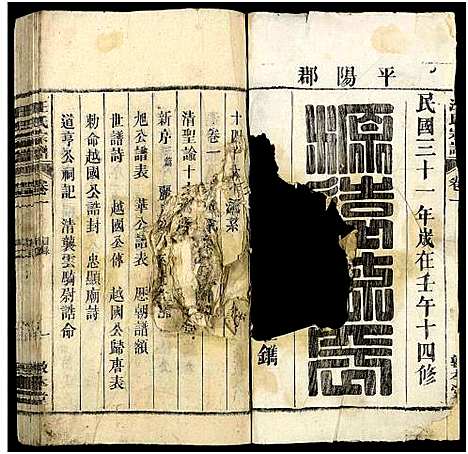 平陽郡
民國三十一年歲在壬午十四修
源遠流長
鐫
汪氏宗譜
卷一
敦本堂
十四
卷一
清聖諭十
新序三篇
旭公誥表 華公誥表 歷朝譜額
世譜詩 越國公傳 越國公歸唐表
勅命越國公誥封 忠顯廟詩
道亨公祠記 清襲雲騎尉誥命
汪氏宗譜
卷一
一
敦本堂